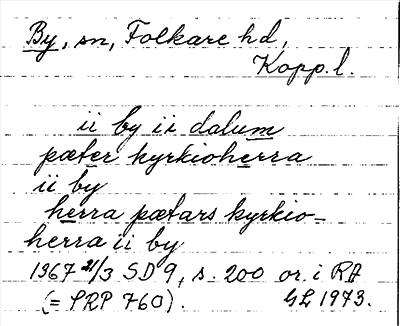 By, sn, Folkare hd,
Kopp. l.
ii by ii dalum
pæter kyrkioherra
ii by
herra pætars kyrkio-
herra ii by
1367 21/3 SD 9, s. 200 or. i RA
(= PRP 760). GL 1973.